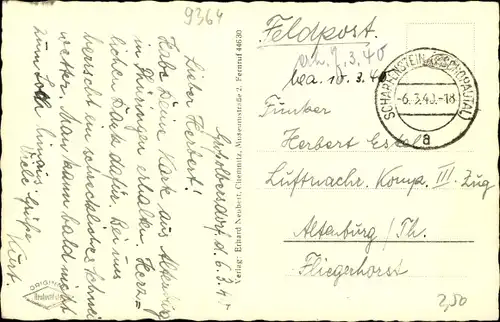 9364
Grießbach, d. 6.3.40
Lieber Herbert!
Habe Deine Karte aus Altenburg
in Thüringen erhalten. Herz=
lichen Dank dafür. Bei uns
herrscht ein schreckliches Schnee
wetter. Man kann bald nicht
zum Loch hinaus.
Viele Grüße
Kurt.
Verlag: Erhard Neubert, Chemnitz, Museumstraße 2. Fernruf 44630
Feldpost.
erh. 9.3.40
bea. 10.3.40
SCHARFENSTEIN (ZSCHOPAUTAL)
-6.3.40.-18
a
Funker
Herbert
Luftnachr. Komp. III. Zug
Altenburg / Th.
Fliegerhorst
2,50